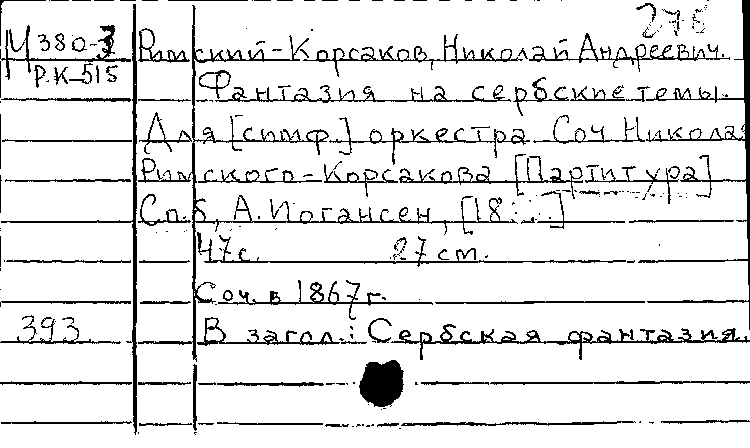 276
М 380-3 Римский-Корсаков, Николай Андреевич.
Р.К-515
Фантазия на сербские темы.
Для [симф.] оркестра Соч. Николая
Римского-Корсакова [Партитура]
Сп.б, А. Иогансен, [18...]
47 с. 27 см.
Соч. в 1867 г.
393. В загол.: Сербская фантазия.